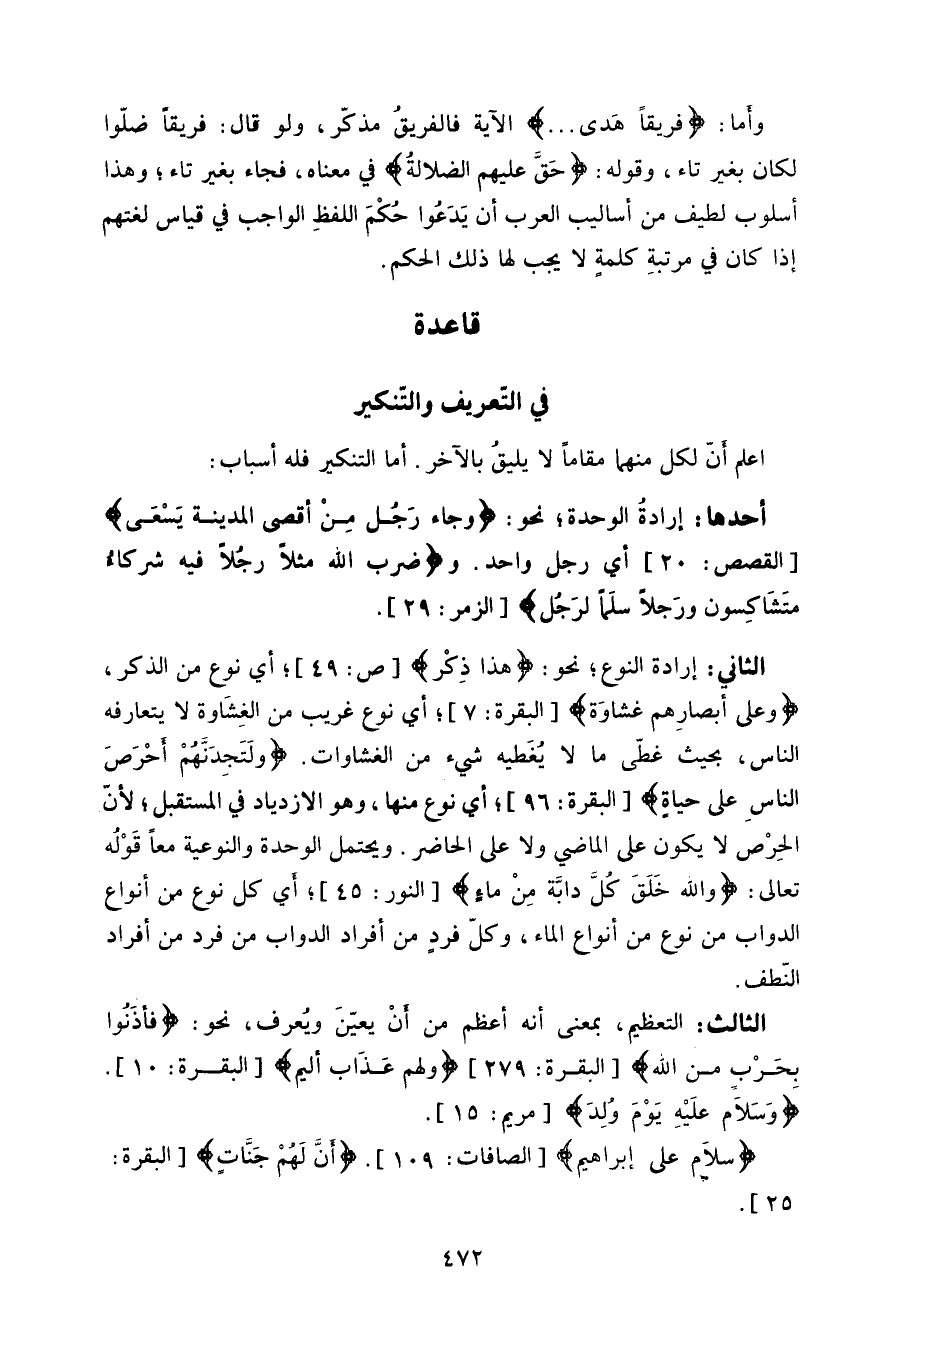 وأَما: ﴿فريقاً هَدى...﴾ الآية فالفريقُ مذكّر، ولو قال: فريقاً ضلّوا
لكان بغير تاء، وقوله: ﴿حَقَّ عليهم الضلالةُ﴾ في معناه، فجاء بغير تاء؛ وهذا
أسلوب لطيف من أساليب العرب أن يَدَعُوا حُكْمَ اللفظِ الواجب في قياس لغتهم
إذا كان في مرتبةِ كلمةٍ لا يجب لها ذلك الحكم.
قاعدة
في التّعريف والتّنكير
اعلم أَنّ لكل منهما مقاماً لا يليقُ بالآخر. أما التنكير فله أسباب:
أحدها: إرادةُ الوحدة؛ نحو: ﴿وجاء رَجُـل مِـنْ أقصى المدينـة يَسْعَـى﴾
[القصص: ٢٠] أي رجل واحد. و﴿ضرب الله مثلاً رجُلاً فيه شركاءُ
متَشَاكِسون ورَجلاً سلَماً لرَجُل﴾ [الزمر: ٢٩].
الثاني: إرادة النوع؛ نحو: ﴿هذا ذِكْر﴾ [ص: ٤٩]؛ أي نوع من الذكر،
﴿وعلى أبصارِهم غشاوَة﴾ [البقرة: ٧]؛ أي نوع غريب من الغِشَاوة لا يتعارفه
الناس، بحيث غطّى ما لا يُغَطيه شيء من الغشاوات. ﴿ولَتَجِدَنَّهُمْ أَحْرَصَ
الناسِ على حياةٍ﴾ [البقرة: ٩٦]؛ أي نوع منها، وهو الازدياد في المستقبل؛ لأنّ
الحِرْص لا يكون على الماضي ولا على الحاضر. ويحتمل الوحدة والنوعية معاً قَوْلُه
تعالى: ﴿والله خَلَقَ كُلَّ دابَّة مِنْ ماءٍ﴾ [النور: ٤٥]؛ أَي كل نوع من أنواع
الدواب من نوع من أنواع الماء، وكلّ فردٍ من أفراد الدواب من فرد من أفراد
النّطف.
الثالث: التعظيم، بمعنى أنه أعظم من أَنْ يعيّنَ ويُعرف، نحو: ﴿فأذَنُوا
بِحَـرْبٍ مـن الله﴾ [البقـرة: ٢٧٩] ﴿ولهم عَـذَاب أليم﴾ [البقـــرة: ١٠].
﴿وَسَلاَم علَيْهِ يَوْمَ وُلِدَ﴾ [مريم: ١٥].
﴿سلاَم على إبراهيم﴾ [الصافات: ١٠٩]. ﴿أَنَّ لَهُمْ جَنَّاتٍ﴾ [البقرة:
٢٥].
٤٧٢